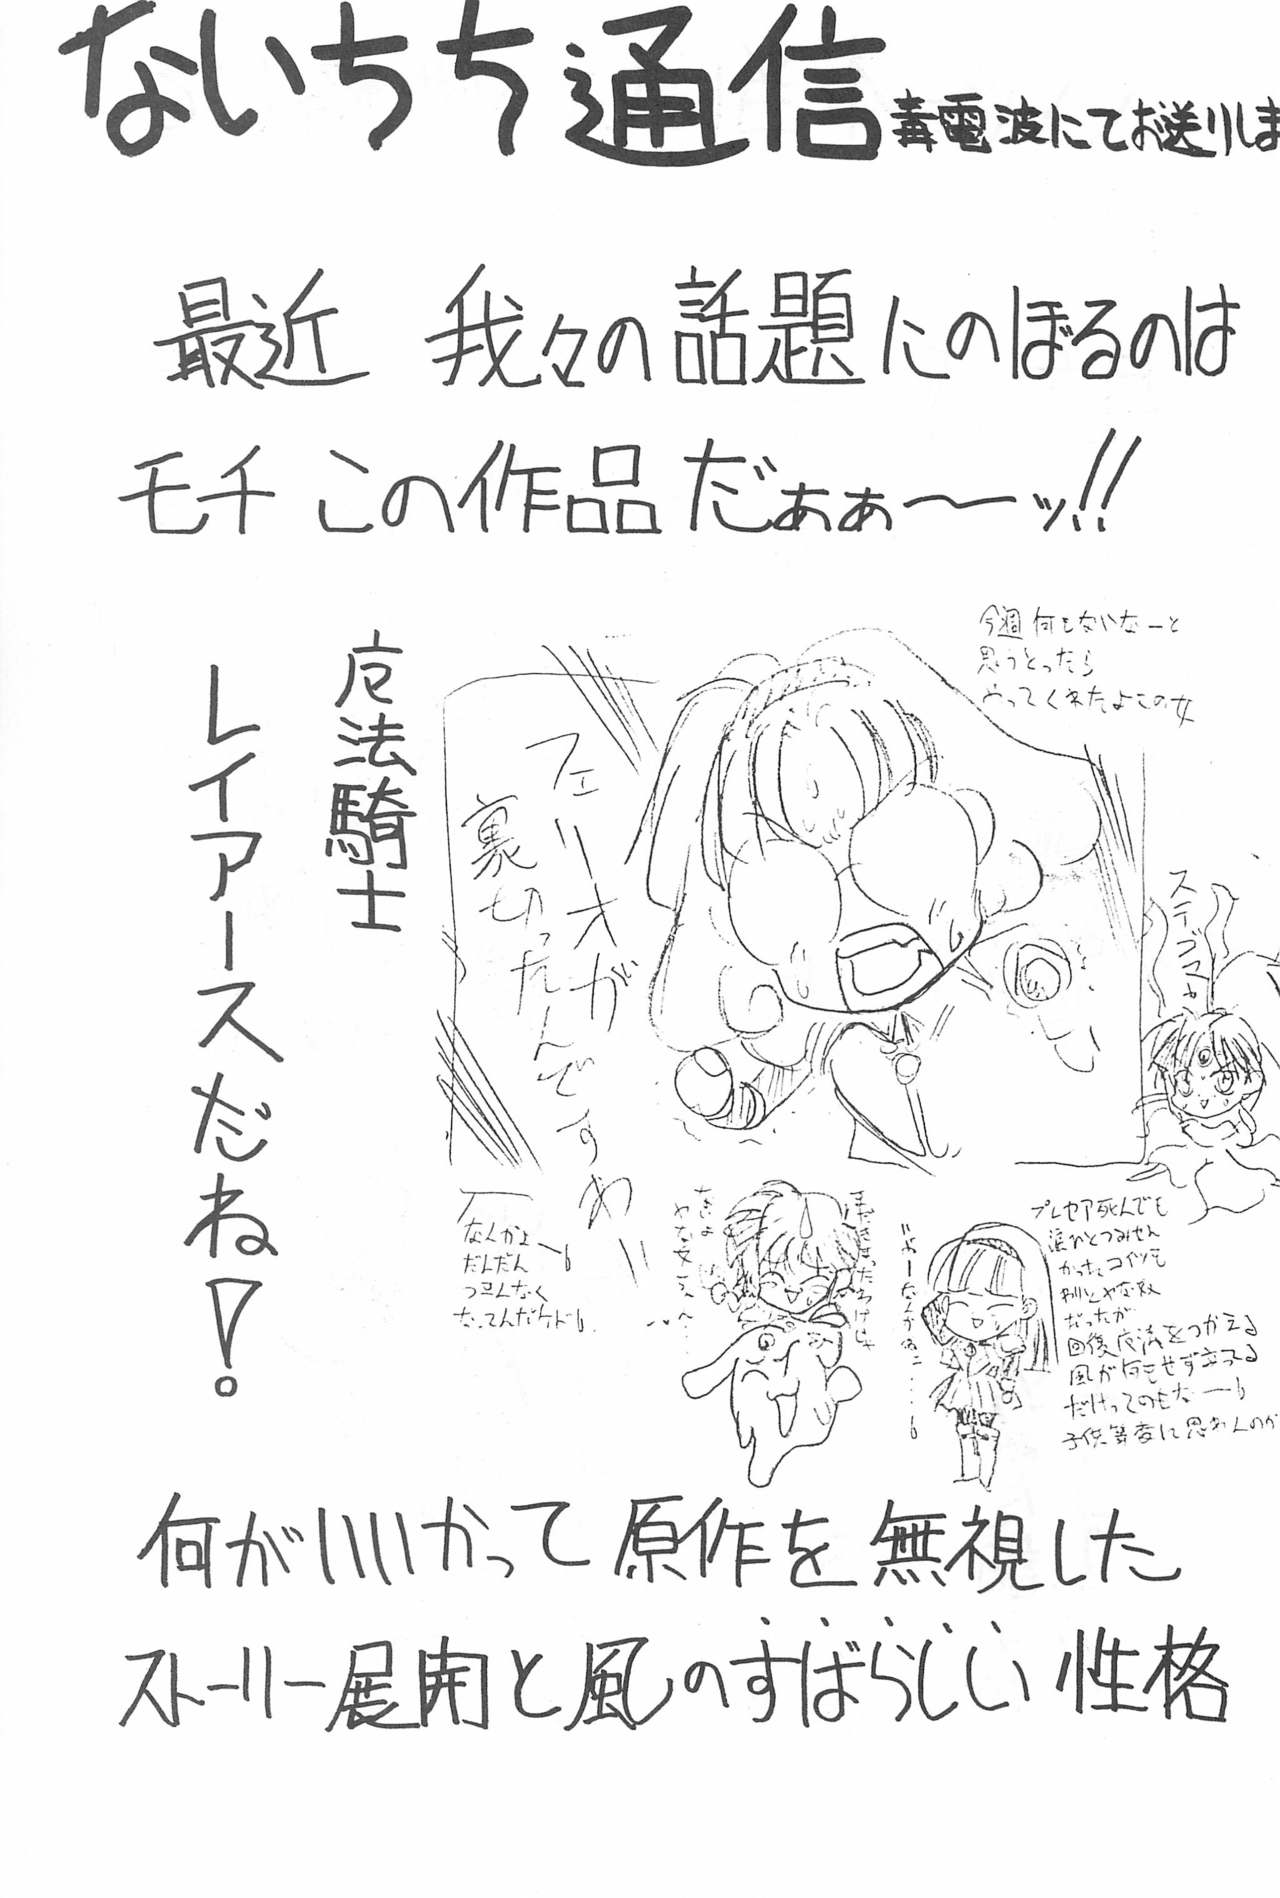 ないちち通信
毒電波にてお送りしま
最近 我々の話題にのぼるのは
モチこの作品だぁぁ〜ーッ!!
魔法騎士
レイアースだね!
今週何もないなーと
思うとったら
やってくれたよこの女
フェリオが
裏切ったんですわ
ステゴマね
なんかよー
だんだん
つまんなく
なってんだケド
プレセア死んでも
涙ひとつみせん
かったコイツも
だったが
回復魔法をつかえる
風が何もせず立ってる
だけってのもなー
子供等変に思わんのか
何がいいかって原作を無視した
ストーリー展開と風のすばらしい性格